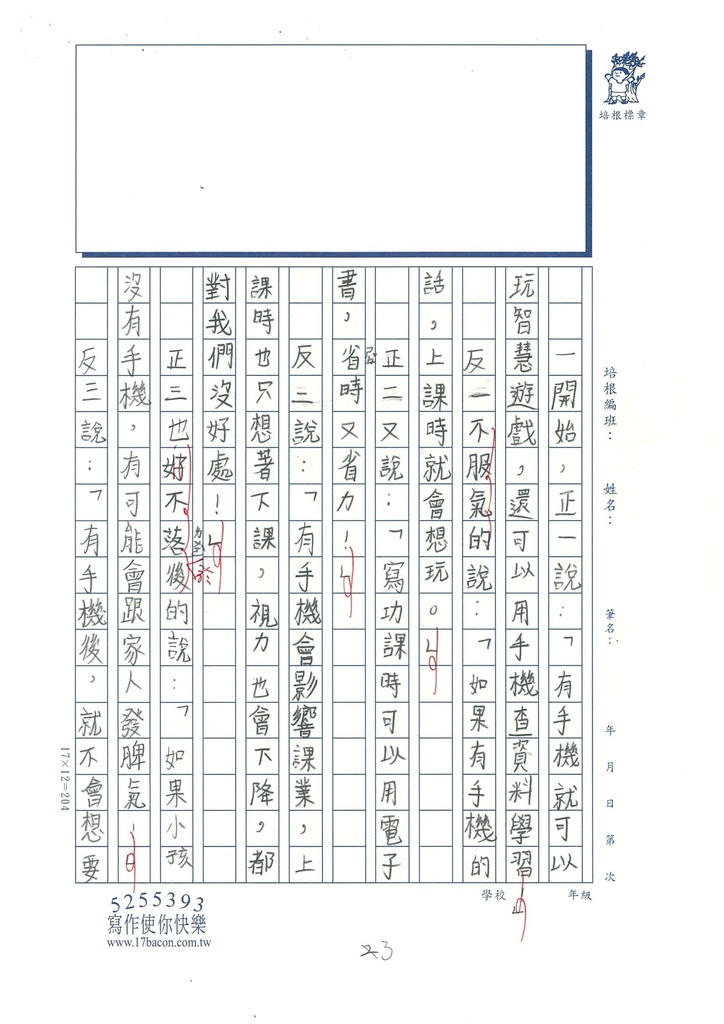 培根標章
培根編班：　姓名：　筆名：　年　月　日　第　次
學校　年級
一開始，正一說：「有手機就可以
玩智慧遊戲，還可以用手機查資料學習！」
反一不服氣的說：「如果有手機的
話，上課時就會想玩。」
正二又說：「寫功課時可以用電子
書，省時又省力！」
反二說：「有手機會影響課業，上
課時也只想著下課，視力也會下降，都
對我們沒好處！」
正三也好不落後的說：「如果小孩
沒有手機，有可能會跟家人發脾氣！」
反三說：「有手機後，就不會想要
17×12=204
5255393
寫作使你快樂
www.17bacon.com.tw
23